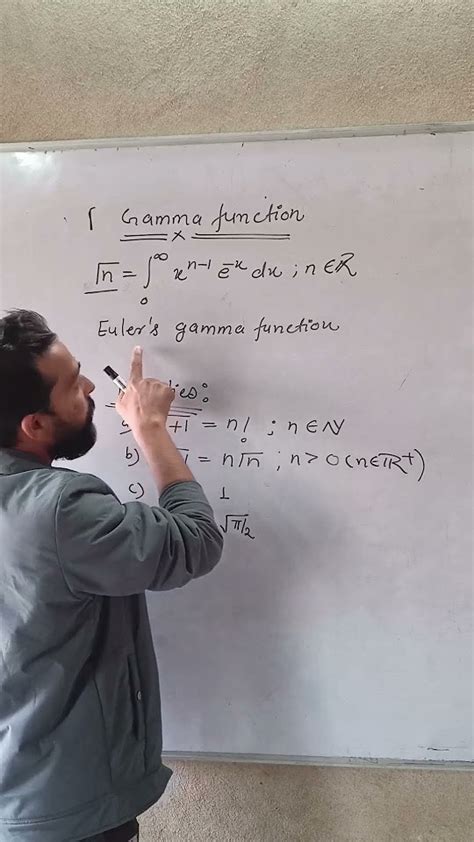 Γ Gamma function
Γn = ∫₀^∞ x^{n-1} e^{-x} dx ; n ∈ R
Euler's gamma function
ies:
+1 = n! ; n ∈ N
b) 1 = n Γn ; n > 0 (n ∈ R⁺)
c) 1
√π/2